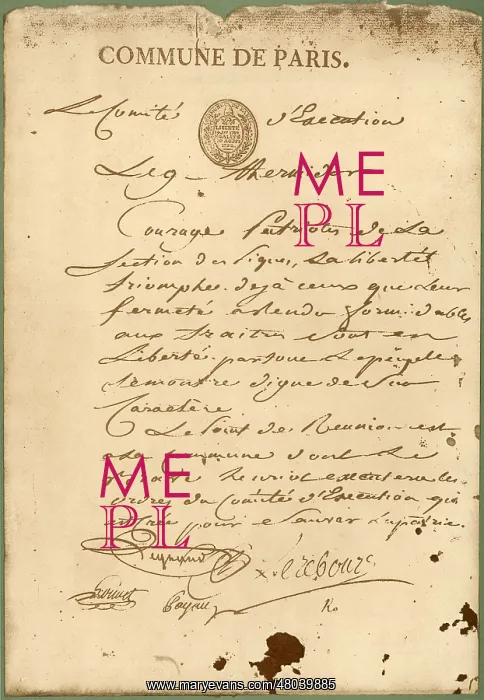 COMMUNE DE PARIS.
Le Comité d'Execution
Le 9 thermidor
Courage Patriotes de La
Section des Piques, La liberté
triomphe. déjà ceux que Leur
fermeté a rendu formidables
aux traitres sont en
Liberté. partout Le peuple
se montre digne de son
Caractère
Le Point de Reunion est
a la Commune dont Le
brave henriot executera les
ordres du Comité d'Execution qui
est créé pour Sauver La patrie.
Legrand Lerebours
Louvet Payan Ro
ME
PL
ME
PL
www.maryevans.com/48039885